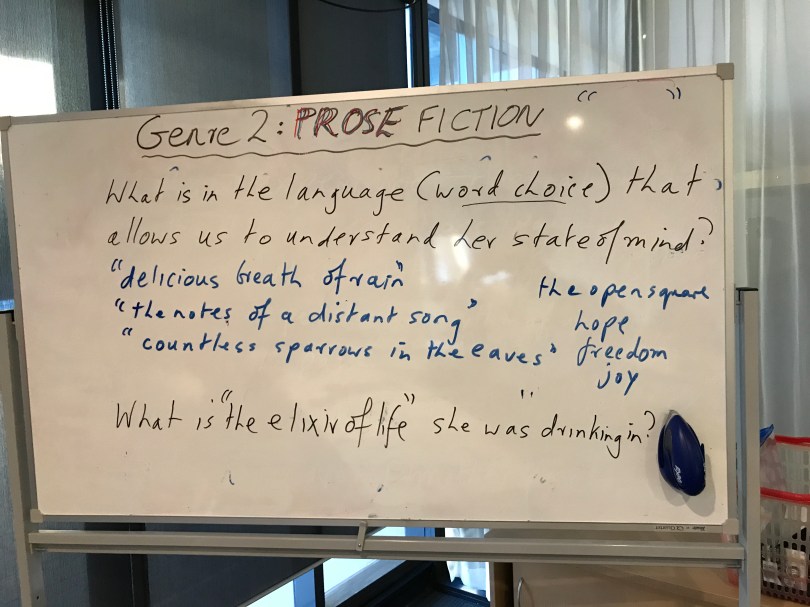 Genre 2: PROSE FICTION " "
What is in the language (word choice) that
allows us to understand her state of mind?
"delicious breath of rain"
"the notes of a distant song"
"countless sparrows in the eaves"
the open square
hope
freedom
joy
What is "the elixir of life" she was drinking in?